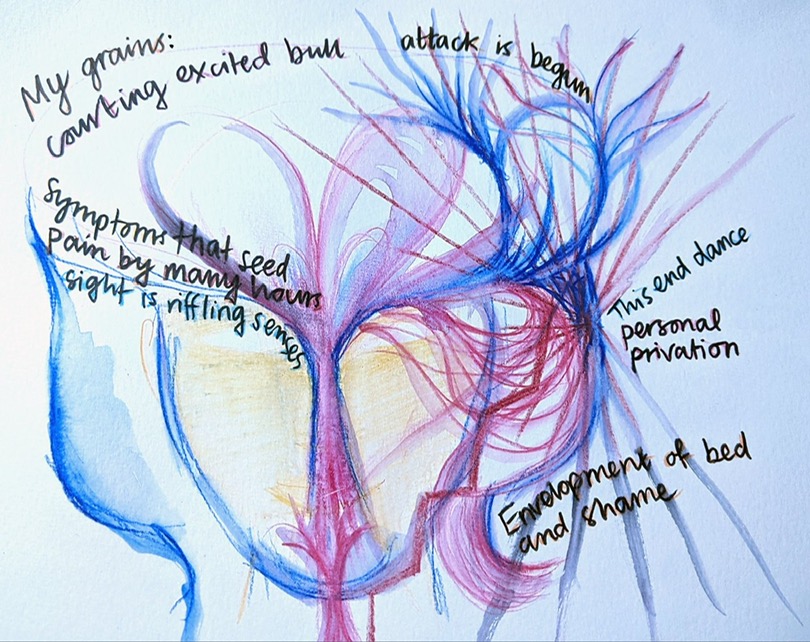 My grains:
courting excited bull
attack is begun
Symptoms that seed
Pain by many hours
sight is riffling senses
This end dance
personal
privation
Envelopment of bed
and shame